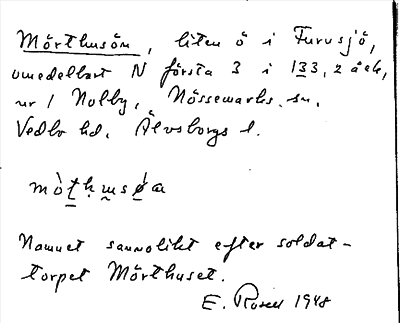 Mörthusön, liten ö i Furusjö,
omedelbart N första 3 i 133, 2 ä ek,
nr 1 Nolby, Nössemarks sn.
Vedbo hd. Älvsborgs l.
Namnet sannolikt efter soldat-
torpet Mörthuset.
E. Rosell 1948